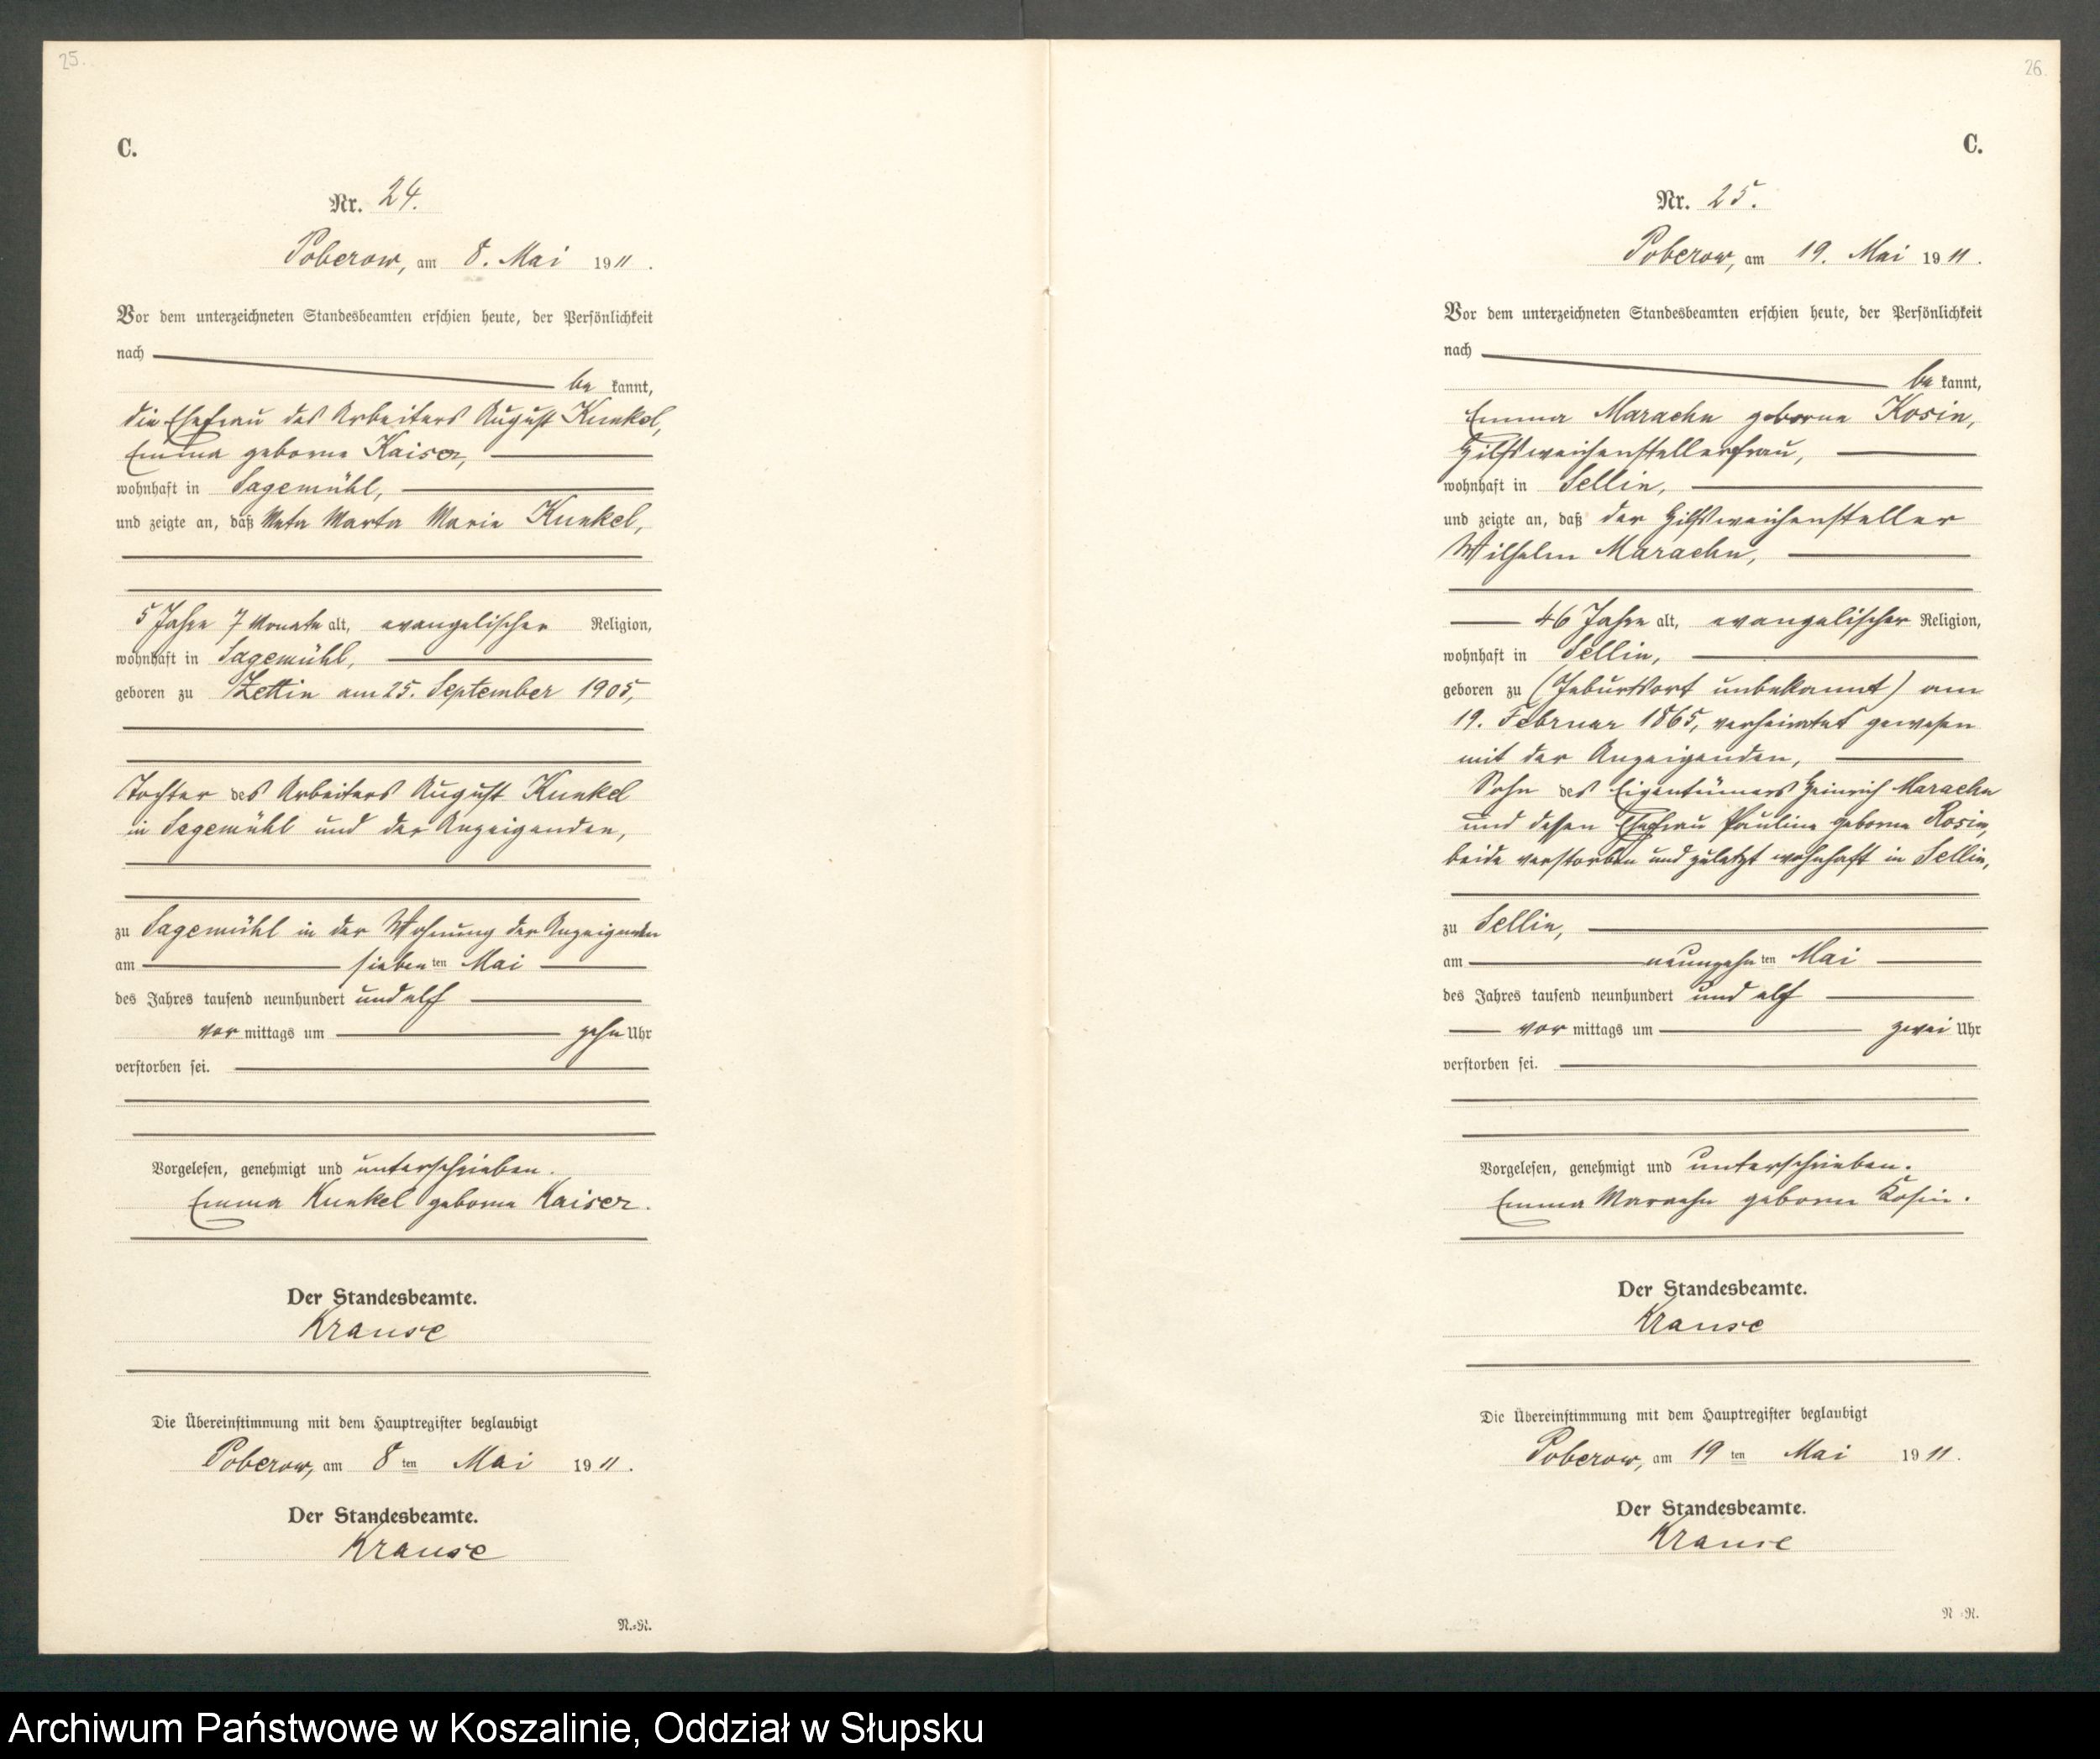 25.
C.
Nr. 24.
Poberow, am 8. Mai 1911.
Vor dem unterzeichneten Standesbeamten erschien heute, der Persönlichkeit
nach
be kannt,
die Ehefrau des Arbeiters August Kunkel,
Emma geborne Kaiser,
wohnhaft in Sagemühl,
und zeigte an, daß Meta Marta Marie Kunkel,
5 Jahre 7 Monate alt, evangelischer Religion,
wohnhaft in Sagemühl,
geboren zu Zettin am 25. September 1905,
Tochter des Arbeiters August Kunkel
in Sagemühl und der Anzeigenden,
zu Sagemühl in der Wohnung der Anzeigenden
am siebenten Mai
des Jahres tausend neunhundert und elf
vor mittags um zehn Uhr
verstorben sei.
Vorgelesen, genehmigt und unterschrieben.
Emma Kunkel geborne Kaiser.
Der Standesbeamte.
Krause
Die Übereinstimmung mit dem Hauptregister beglaubigt
Poberow, am 8ten Mai 1911.
Der Standesbeamte.
Krause
N.-R.
26.
C.
Nr. 25.
Poberow, am 19. Mai 1911.
Vor dem unterzeichneten Standesbeamten erschien heute, der Persönlichkeit
nach
be kannt,
Emma Marachn geborne Kosin,
Hilfsweichenstellerfrau,
wohnhaft in Sellin,
und zeigte an, daß der Hilfsweichensteller
Wilhelm Marachn,
46 Jahre alt, evangelischer Religion,
wohnhaft in Sellin,
geboren zu (Geburtsort unbekannt) am
19. Februar 1865, verheiratet gewesen
mit der Anzeigenden,
Sohn des Eigentümers Heinrich Marachn
und dessen Ehefrau Pauline geborne Rosin,
beide verstorben und zuletzt wohnhaft in Sellin,
zu Sellin,
am neunzehnten Mai
des Jahres tausend neunhundert und elf
vor mittags um zwei Uhr
verstorben sei.
Vorgelesen, genehmigt und unterschrieben.
Emma Marachn geborne Kosin.
Der Standesbeamte.
Krause
Die Übereinstimmung mit dem Hauptregister beglaubigt
Poberow, am 19ten Mai 1911.
Der Standesbeamte.
Krause
N.-R.
Archiwum Państwowe w Koszalinie, Oddział w Słupsku